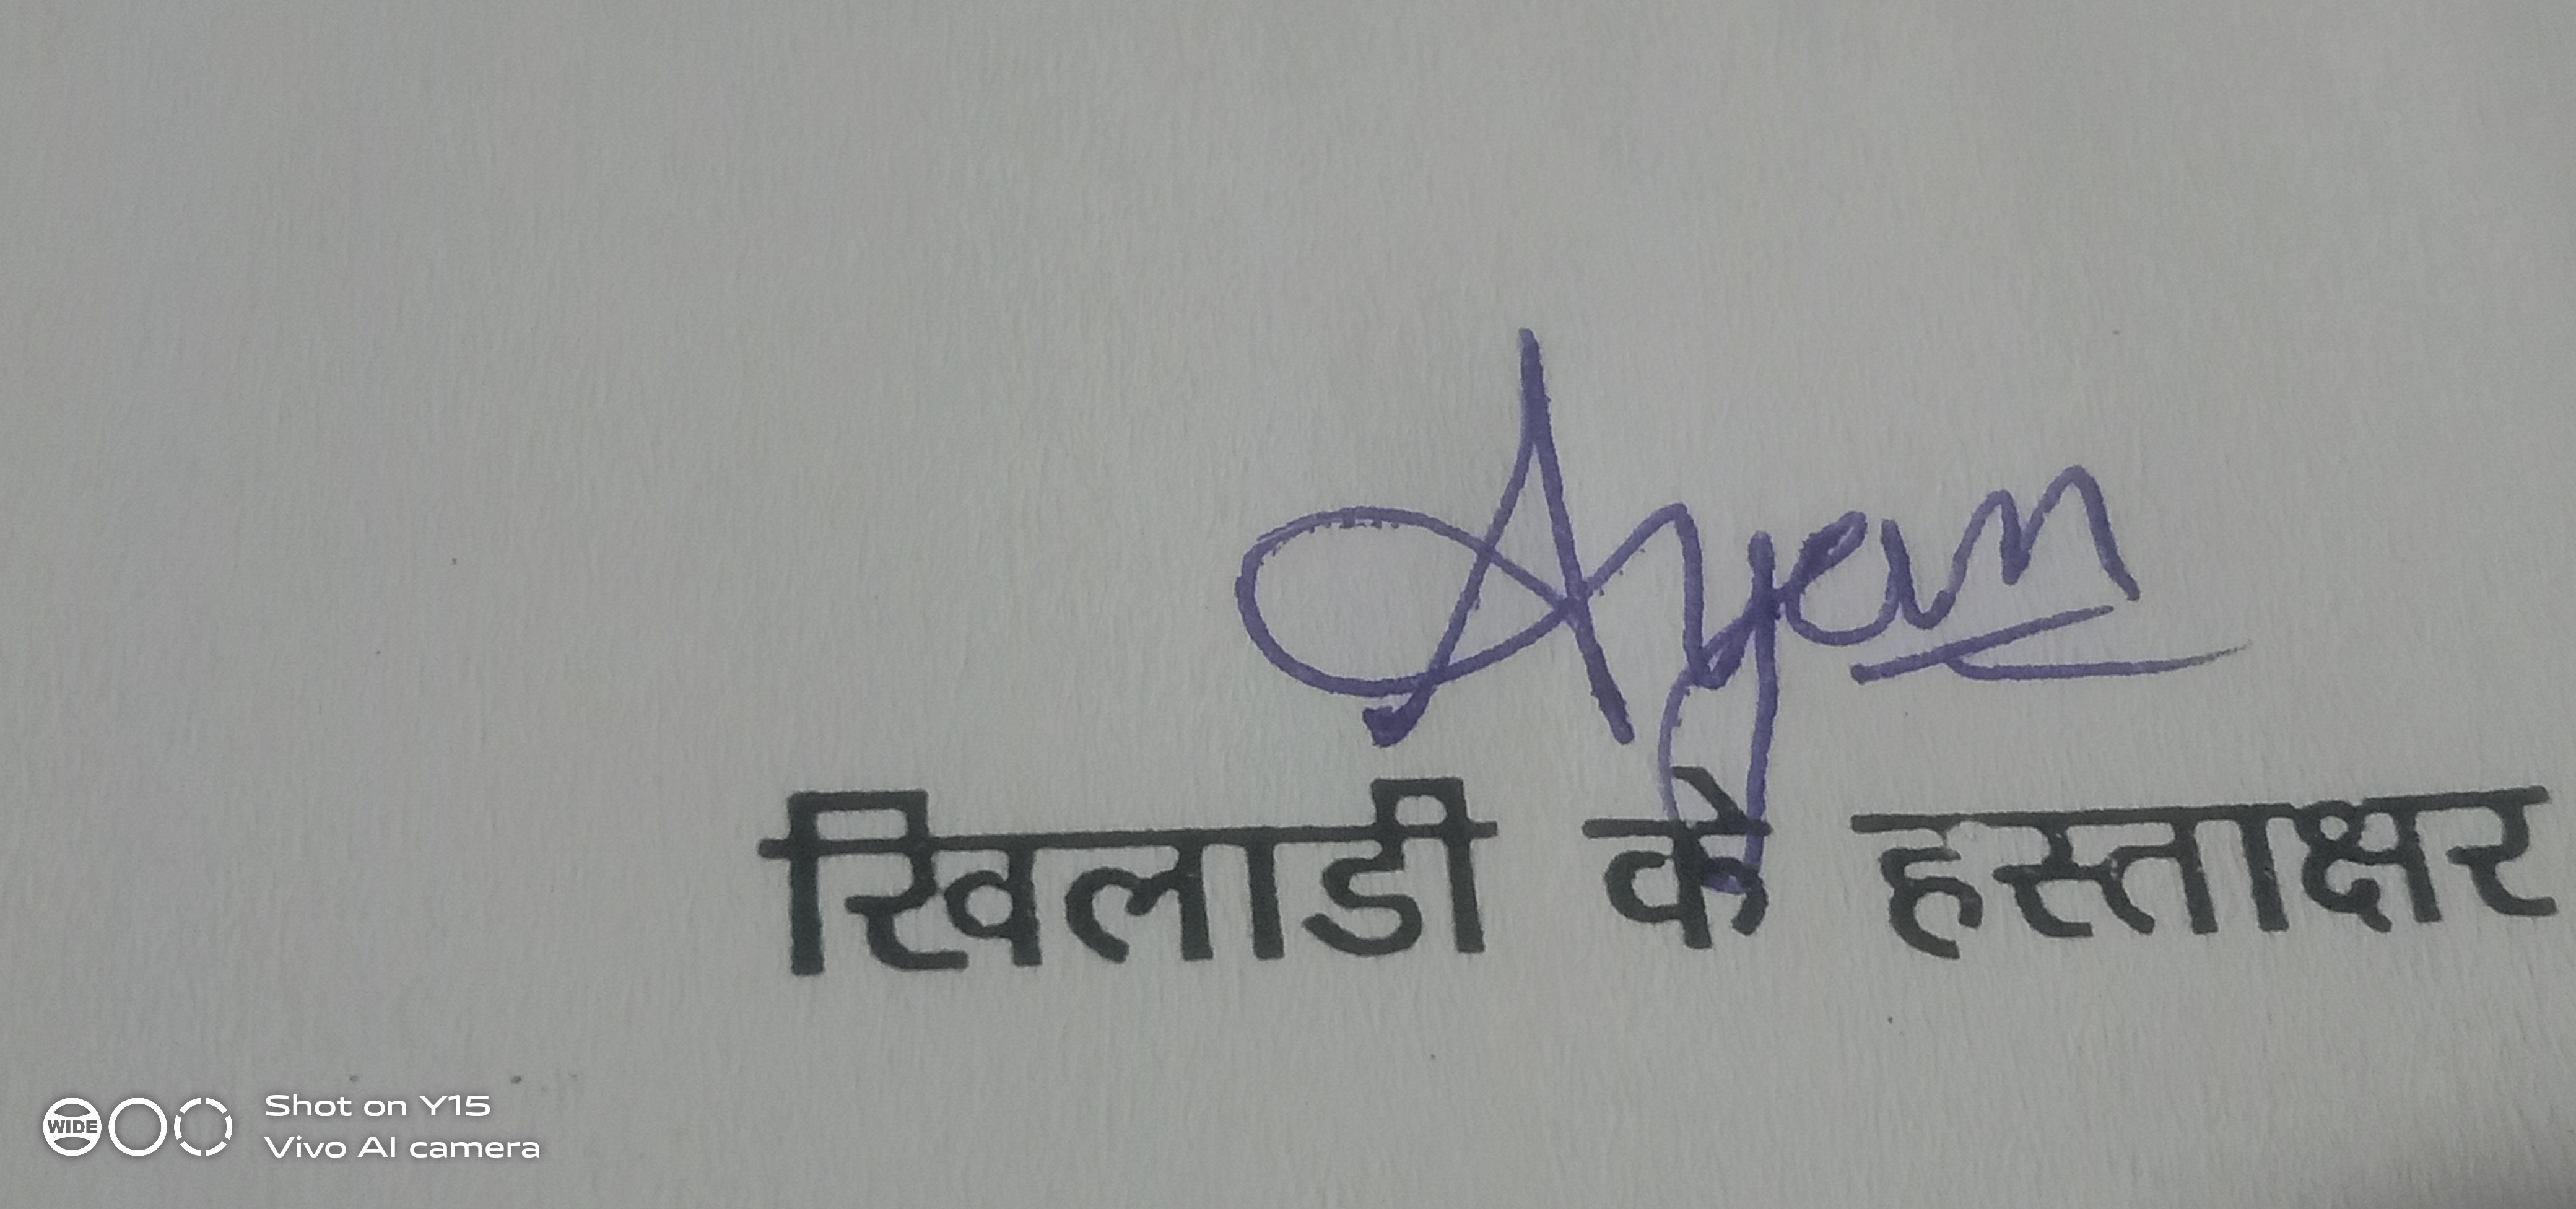 Ayan
खिलाडी के हस्ताक्षर
WIDE
Shot on Y15
Vivo AI camera